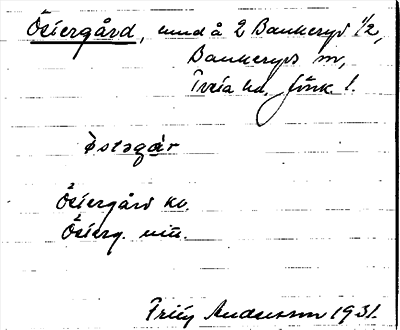 Östergård, und å 2 Bankeryd 1/2,
Bankeryds sn,
Tveta hd. Jönk l.
östəgár
Östergård kv.
Österg.
Anderson 1931.